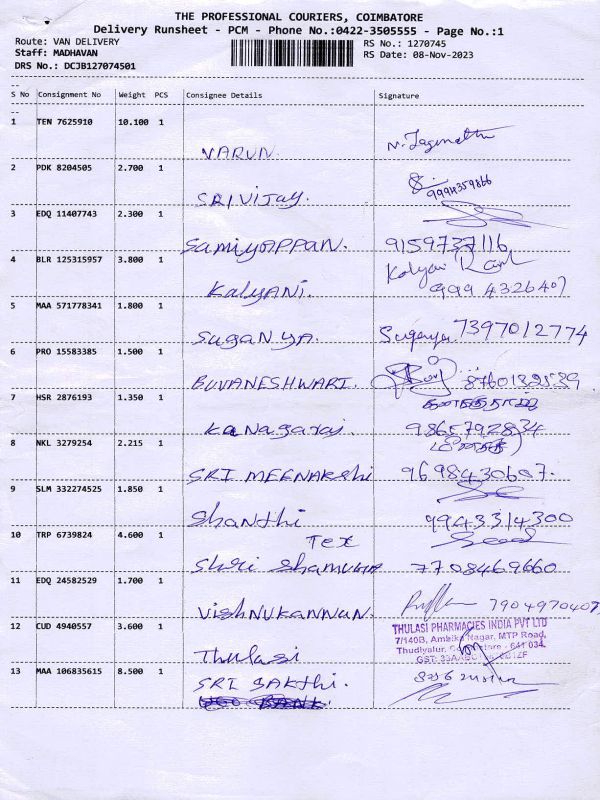 THE PROFESSIONAL COURIERS, COIMBATORE
Delivery Runsheet - PCM - Phone No.:0422-3505555 - Page No.:1
Route: VAN DELIVERY RS No.: 1270745
Staff: MADHAVAN RS Date: 08-Nov-2023
DRS No.: DCJB127074501
S No Consignment No Weight PCS Consignee Details Signature
1 TEN 7625910 10.100 1
VARUN.
2 PDK 8204505 2.700 1
SRIVIJAY. 9994359866
3 EDQ 11407743 2.300 1
SamiyAPPAN. 9159737116
4 BLR 125315957 3.800 1
KalyANi. 999 4326407
5 MAA 571778341 1.800 1
SugaNYA. Suganya 7397012774
6 PRO 15583385 1.500 1
BUVANESHWARI. 8760132539
7 HSR 2876193 1.350 1
KaNagaraj. 9865792834
8 NKL 3279254 2.215 1
SRI MEENAKshi 9698430607.
9 SLM 332274525 1.850 1
Shanthi 9943314300
10 TRP 6739824 4.600 1
Tex
Shri 7708469660
11 EDQ 24582529 1.700 1
VishNUKANNAN. 7904970407
12 CUD 4940557 3.600 1
THULASI PHARMACIES INDIA PVT LTD
7/140B, Ambika Nagar, MTP Road,
Thudiyalur, Coimbatore - 641 034.
Thulasi
13 MAA 106835615 8.500 1
SRI SAKthi.